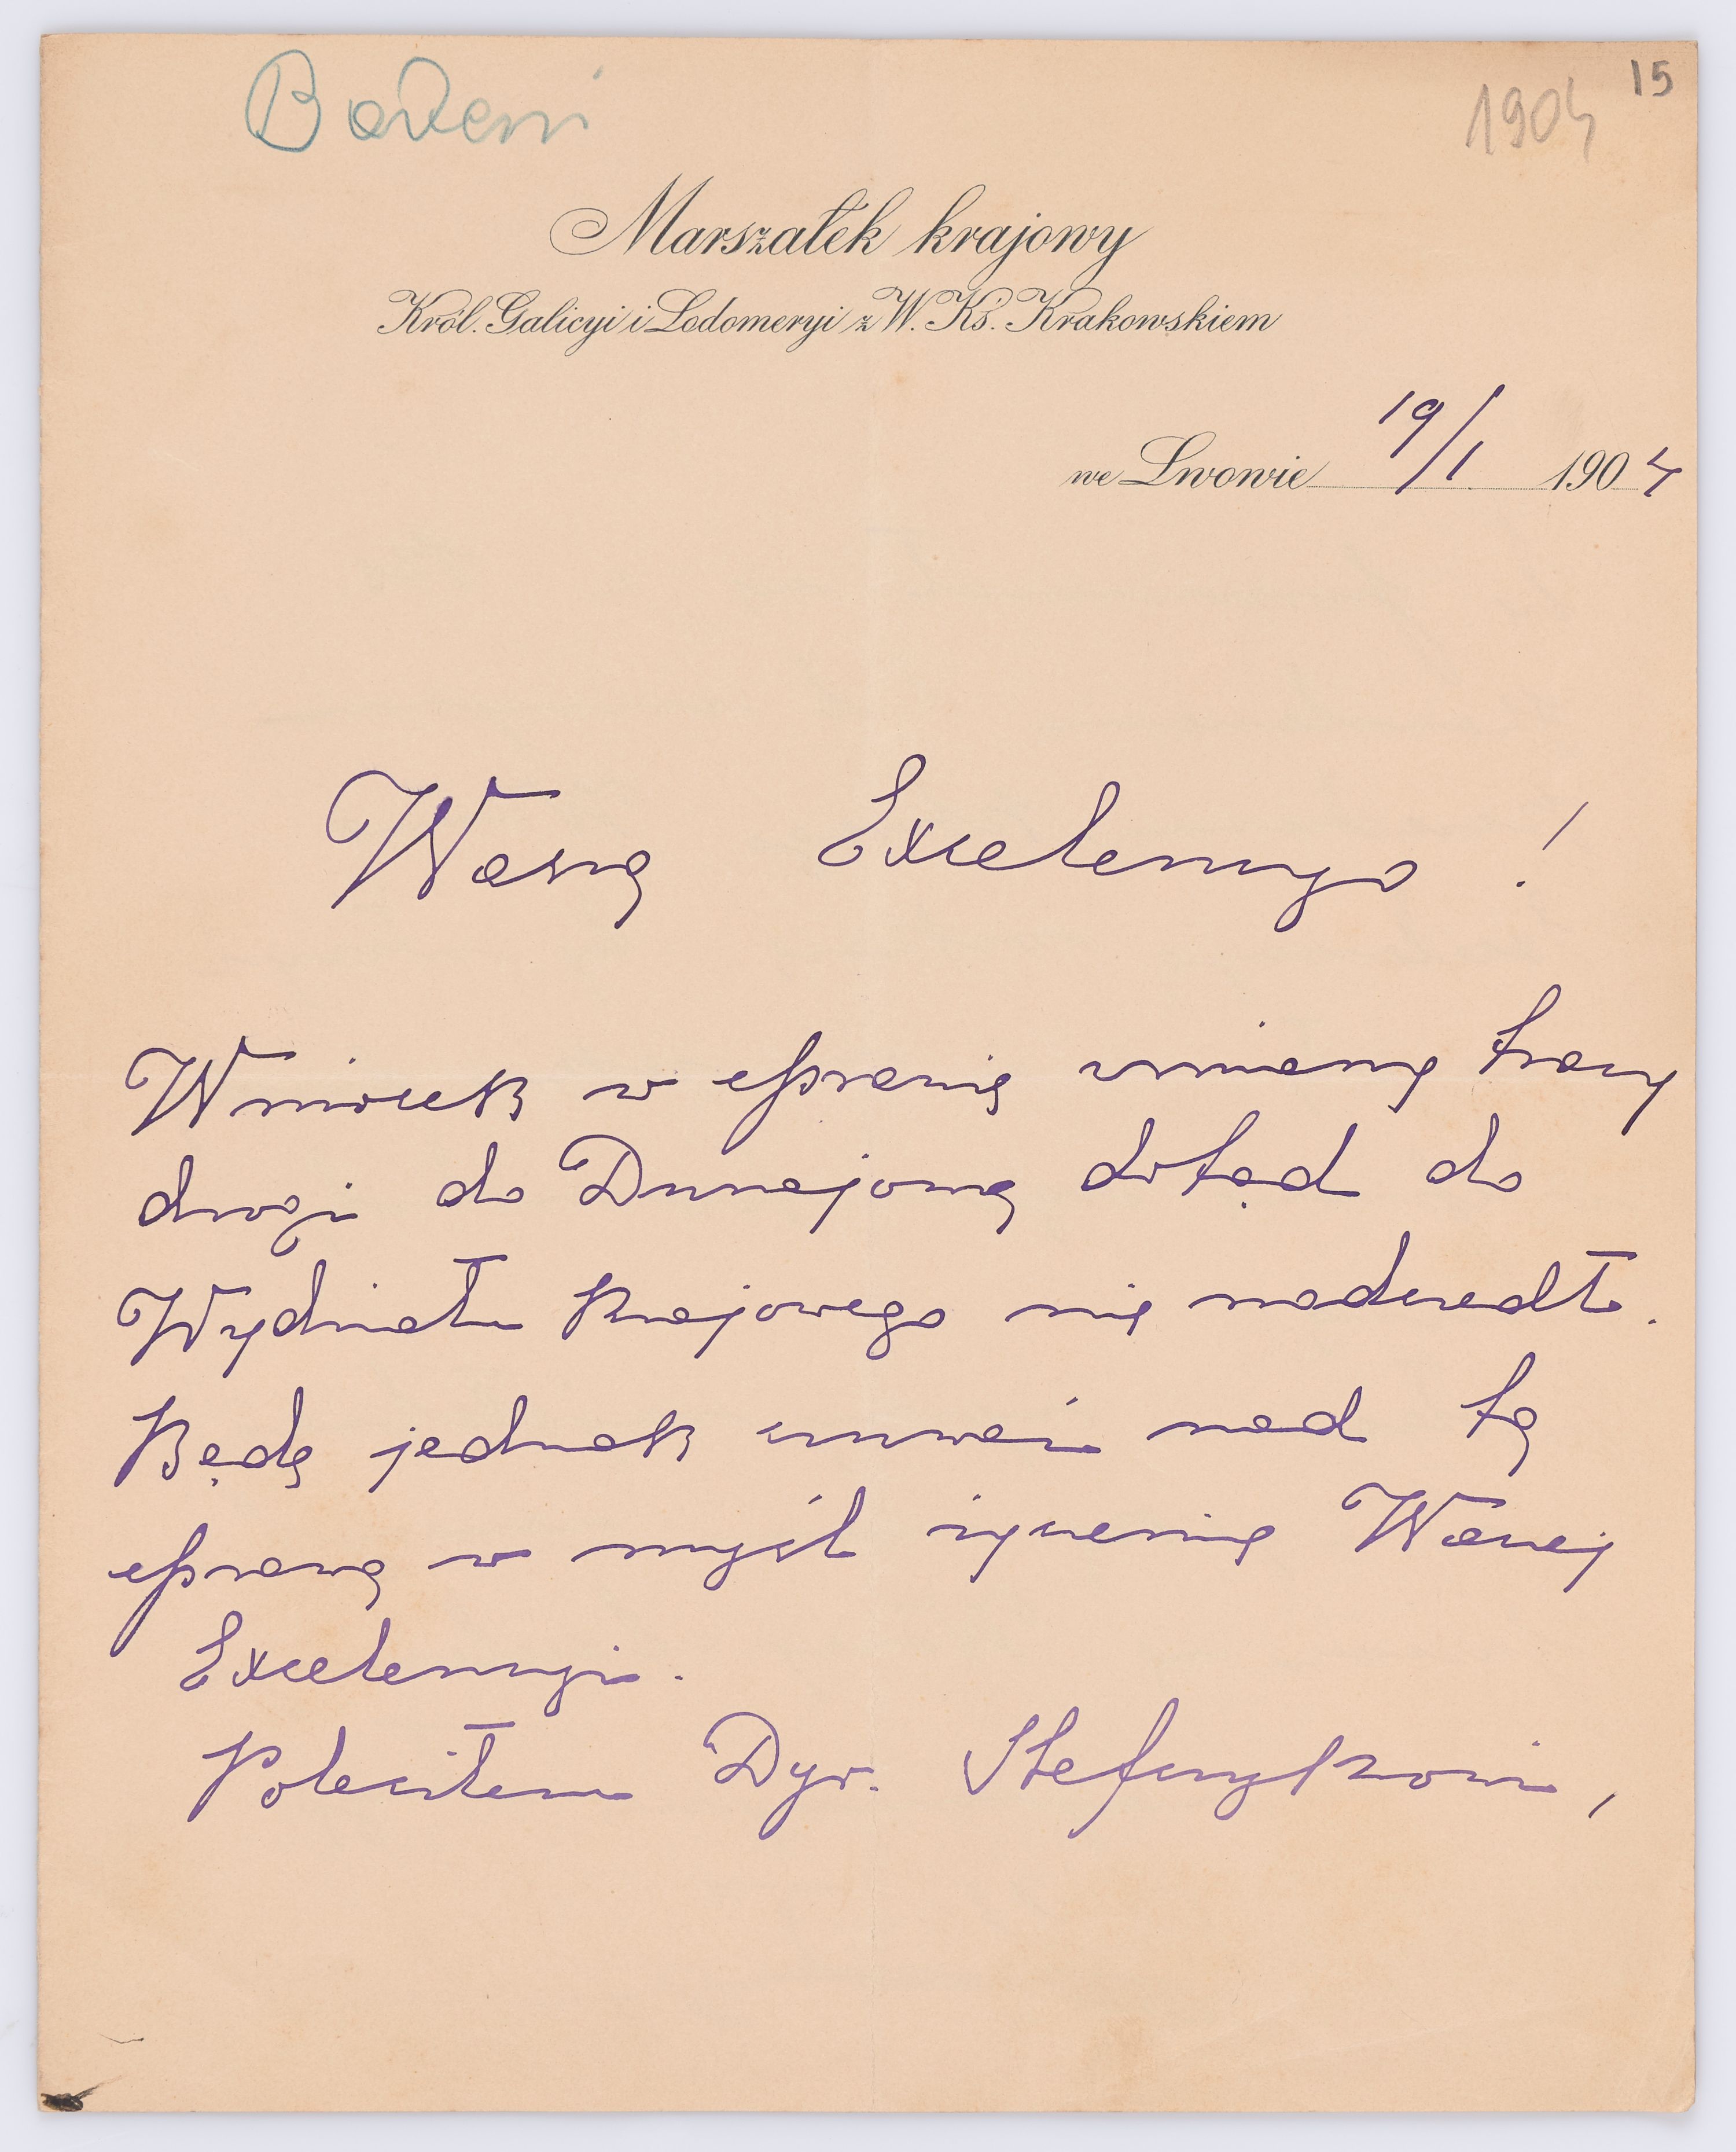 Badeni
1904
15
Marszałek krajowy
Król. Galicyi i Lodomeryi z W. Ks. Krakowskiem
we Lwowie 19/I 1904
Waszą Excelencyo !
Wniosek w sprawie zmiany trasy
drogi do Dunajowa dotąd do
Wydziału krajowego nie nadeszedł.
Będę jednak czuwał nad tą
sprawą w myśl życzenia Waszej
Excelencyi.
Poleciłem Dyr. Stefczykowi,